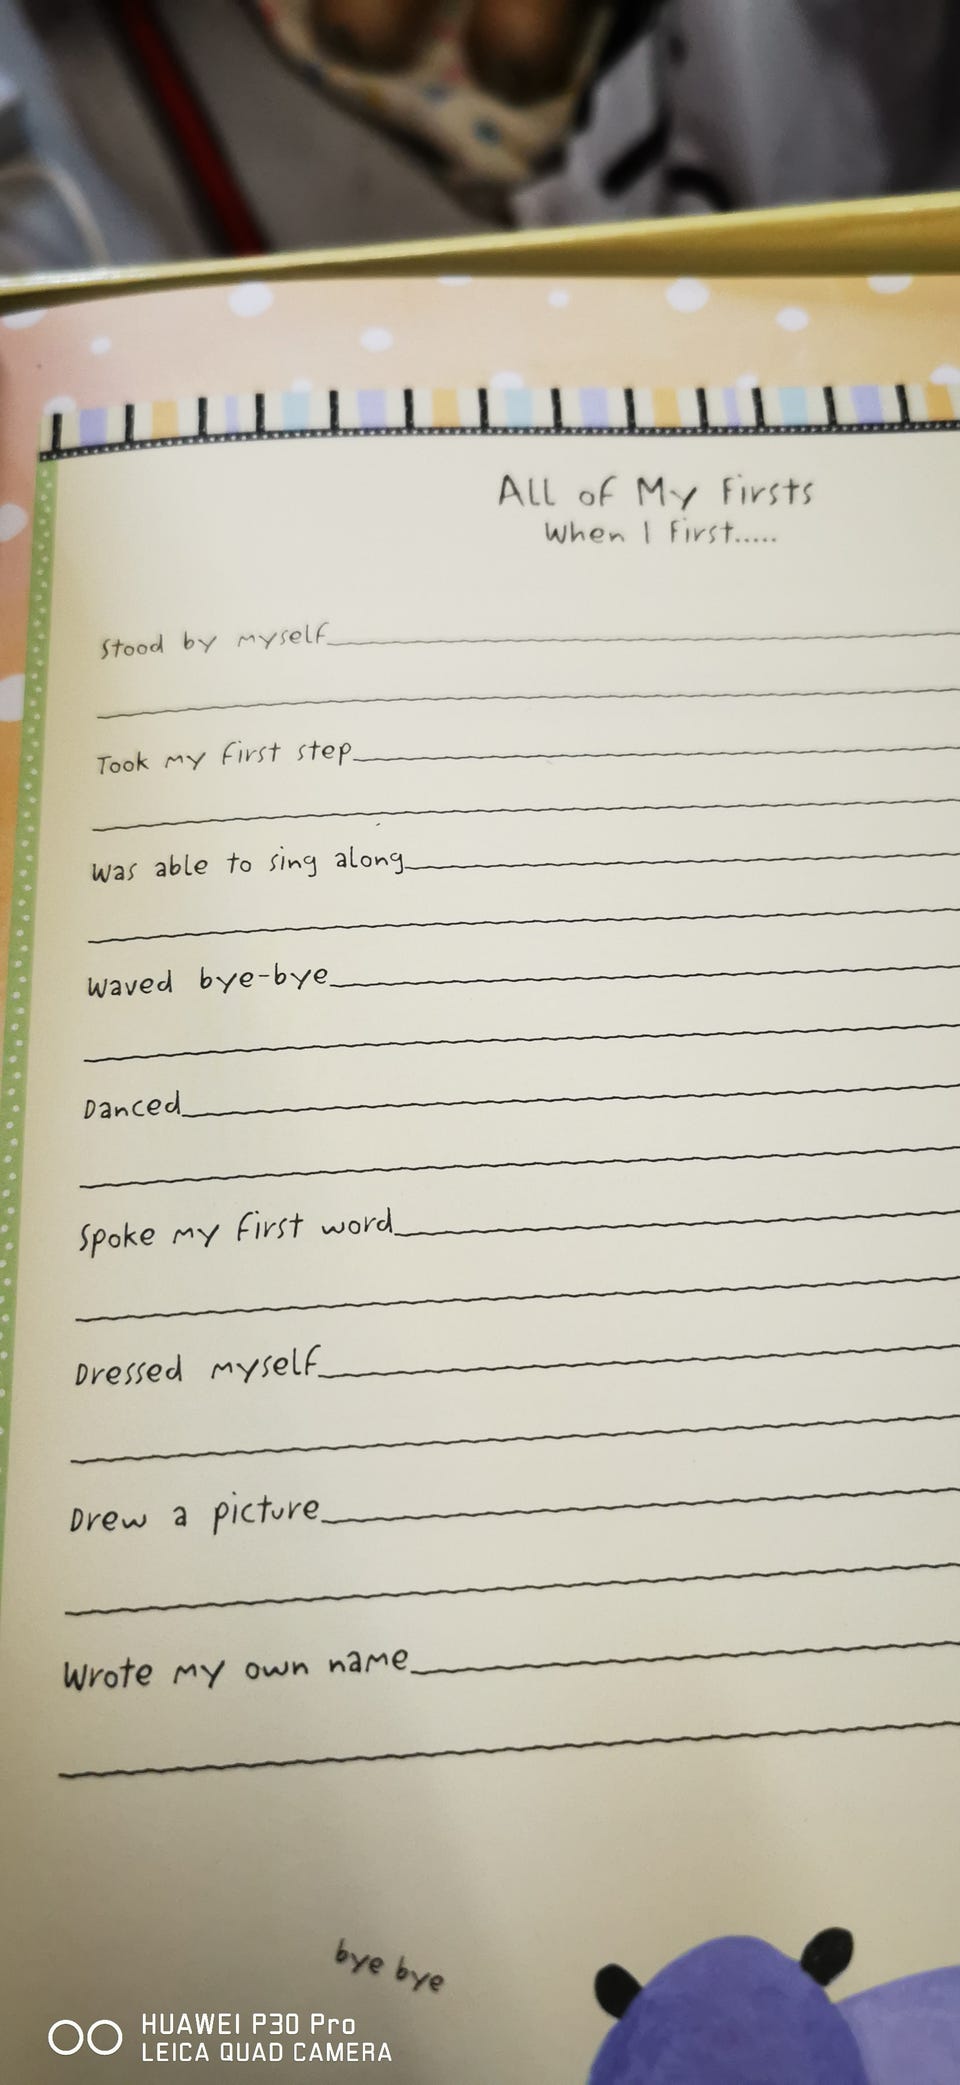 All of My Firsts
When I First.....
Stood by myself
Took my first step
Was able to sing along
Waved bye-bye
Danced
Spoke my first word
Dressed myself
Drew a picture
Wrote my own name
bye bye
HUAWEI P30 Pro
LEICA QUAD CAMERA